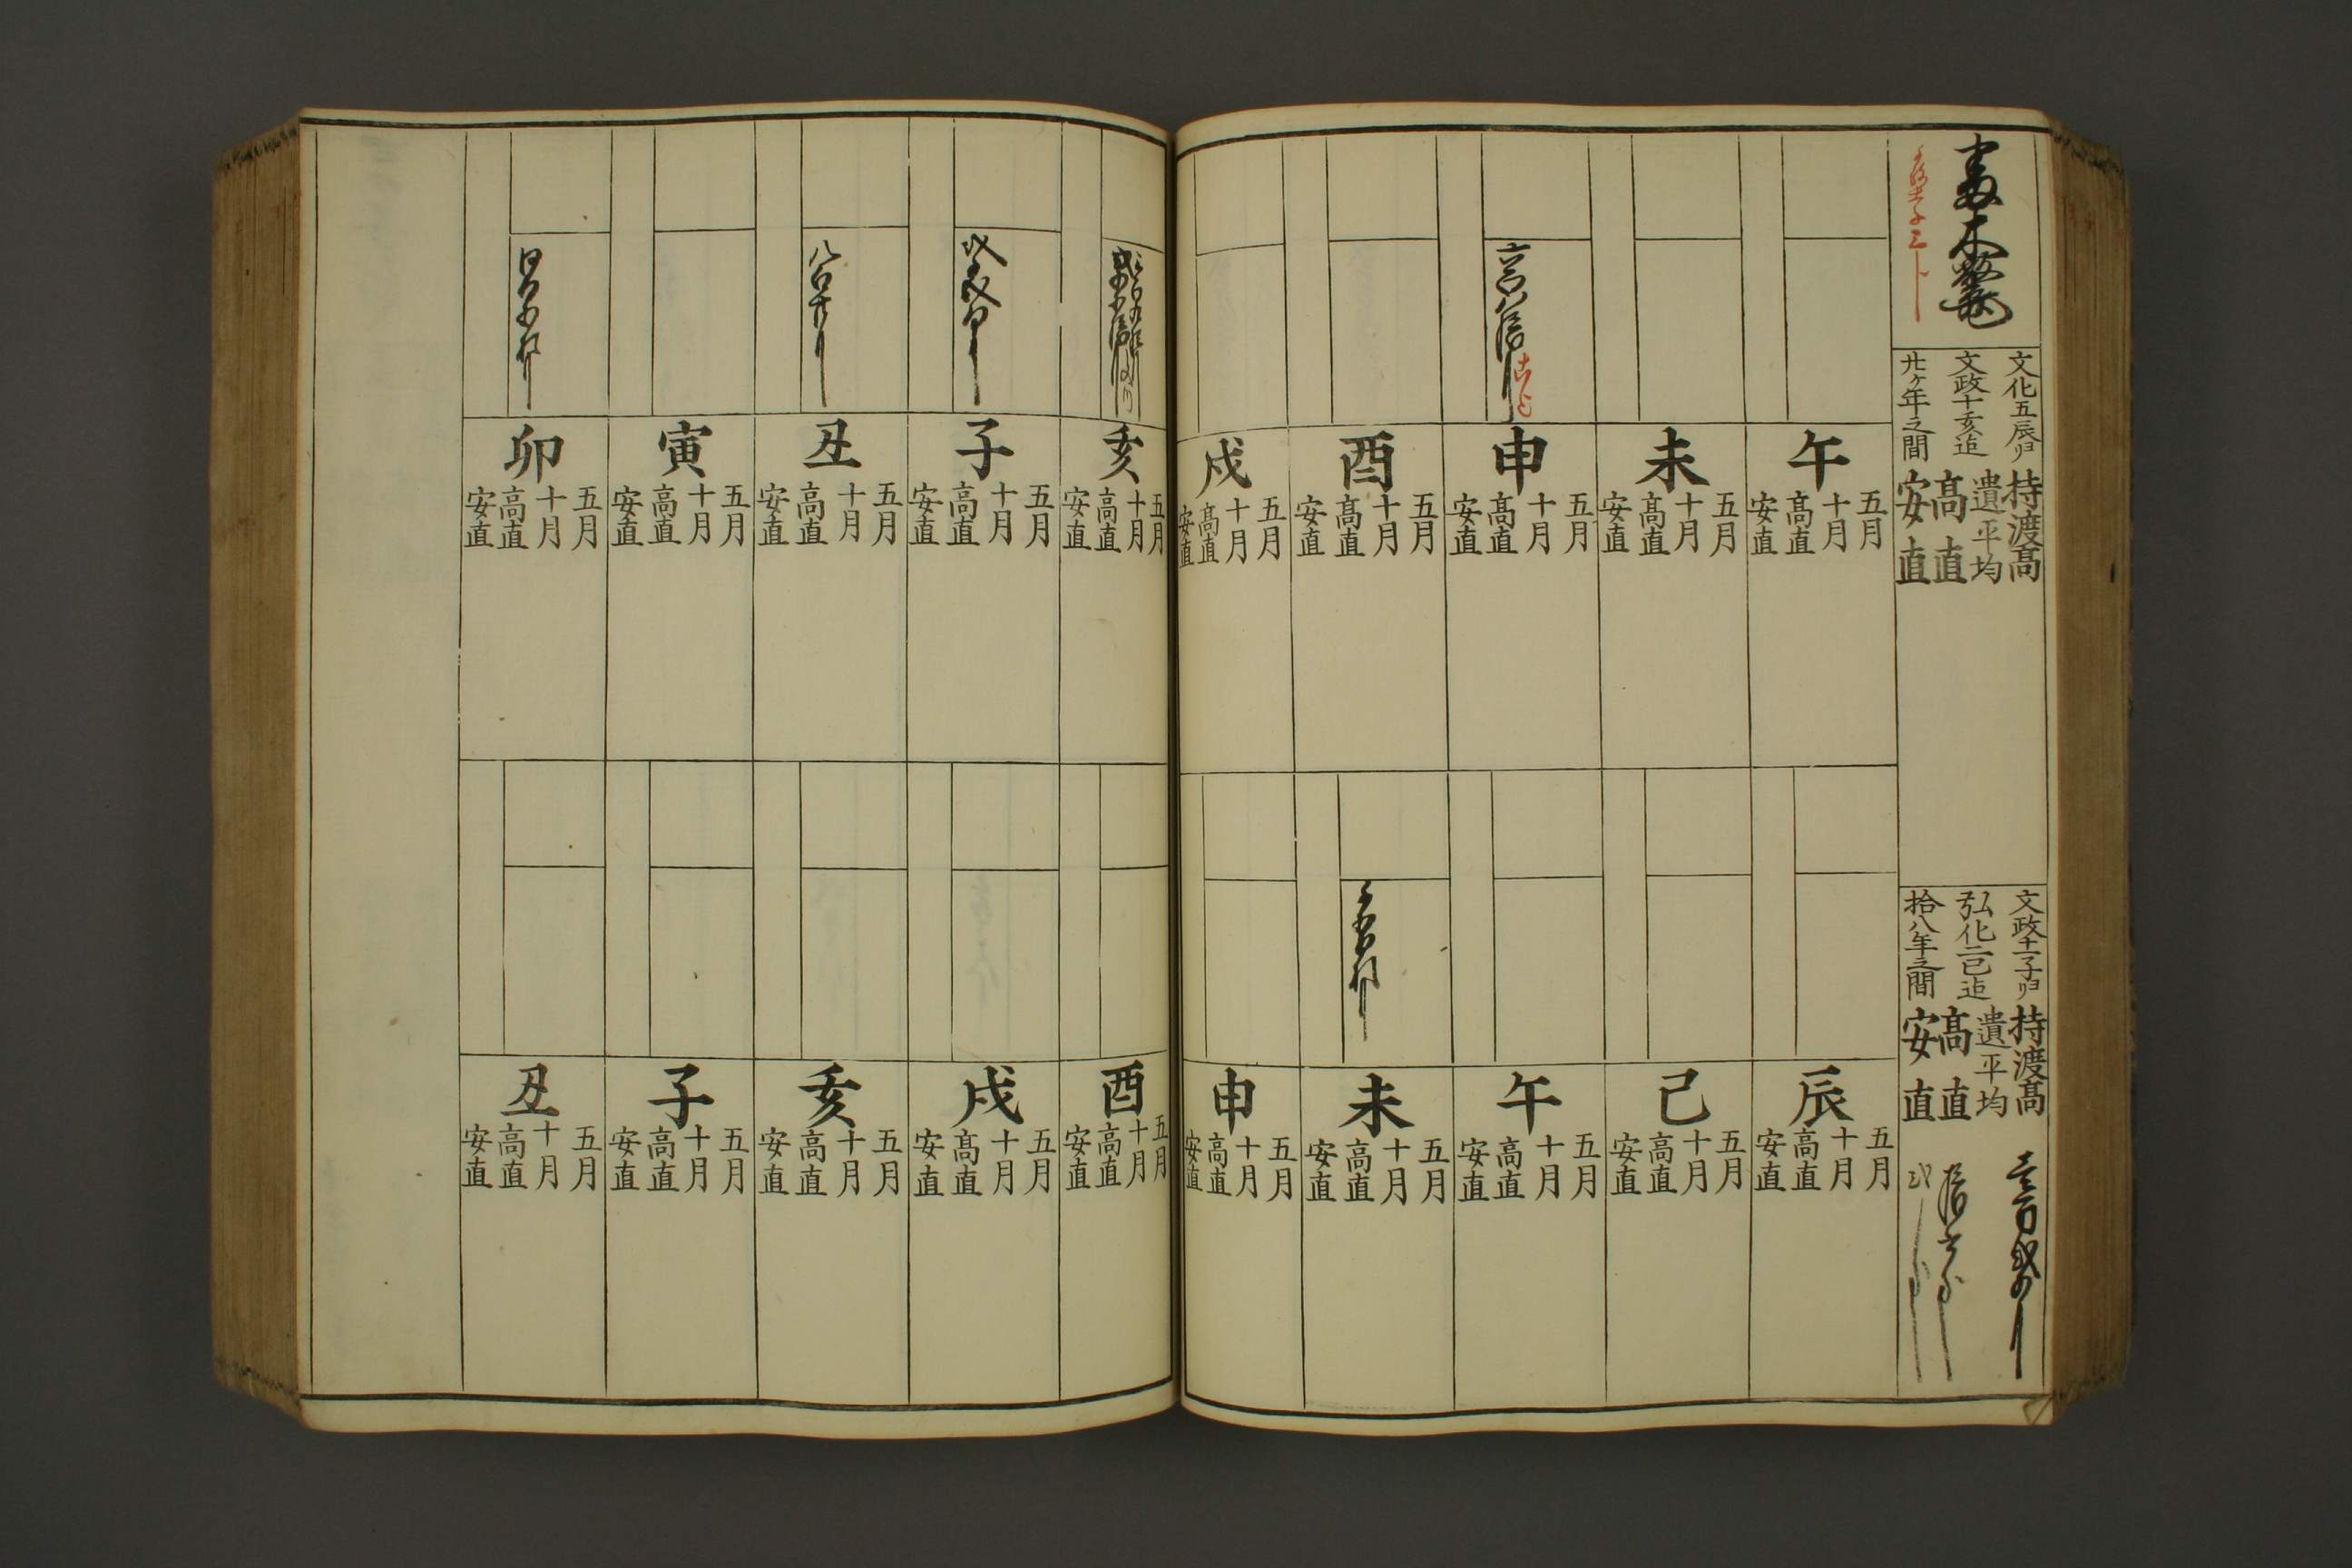 文化五辰ゟ
文政十亥迄
廿ヶ年之間
持渡髙
遺平均
髙直
安直
午
五月
十月
髙直
安直
未
五月
十月
髙直
安直
申
五月
十月
髙直
安直
酉
五月
十月
髙直
安直
戌
五月
十月
髙直
安直
文政十一子ゟ
弘化二巳迄
拾八年之間
持渡髙
遺平均
髙直
安直
辰
五月
十月
高直
安直
巳
五月
十月
高直
安直
午
五月
十月
高直
安直
未
五月
十月
高直
安直
申
五月
十月
高直
安直
亥
五月
十月
高直
安直
子
五月
十月
高直
安直
丑
五月
十月
高直
安直
寅
五月
十月
高直
安直
卯
五月
十月
高直
安直
酉
五月
十月
高直
安直
戌
五月
十月
髙直
安直
亥
五月
十月
高直
安直
子
五月
十月
高直
安直
丑
五月
十月
高直
安直